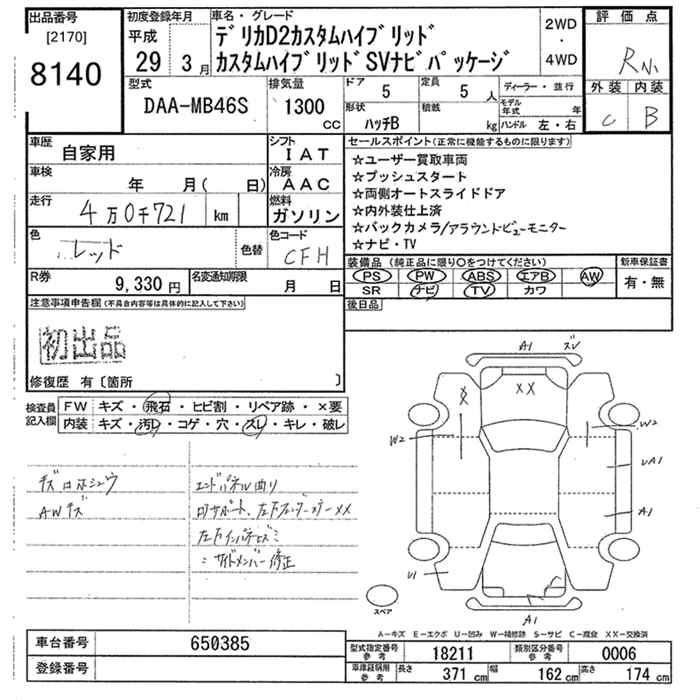 出品番号
[2170]
8140
初度登録年月
平成
29 3月
車名・グレード
デリカD2カスタムハイブリッド
カスタムハイブリッドSVナビパッケージ
2WD
・
4WD
評価点
外装 内装
C B
型式
DAA-MB46S
排気量
1300
CC
ドア
5
定員
5 人
形状
ハッチB
積載
kg
ディーラー・並行
モデル年式 年
ハンドル 左・右
車歴
自家用
シフト
IAT
車検
年 月( 日)
冷房
AAC
走行
4万0千721 km
燃料
ガソリン
色
レッド
色替
色コード
CFH
R券
9,330 円
名変通知期限
月 日
セールスポイント(正常に機能するものに限ります)
☆ユーザー買取車両
☆プッシュスタート
☆両側オートスライドドア
☆内外装仕上済
☆バックカメラ/アラウンドビューモニター
☆ナビ・TV
装備品(純正品に限り○をつけてください)
PS PW ABS エアB AW
SR ナビ TV カワ
新車保証書
有・無
後日品
注意事項申告欄(不具合内容等は具体的に記入して下さい)
初出品
修復歴 有〔箇所 〕
検査員
記入欄
FW キズ・飛石・ヒビ割・リペア跡・×要
内装 キズ・汚レ・コゲ・穴・スレ・キレ・破レ
キズロホシュウ
AWキズ
エンドパネル曲り
ロサポート、左右フェンダーステーXX
左右インパネヒズミ
=サイドメンバー修正
A1 ズレ
X XX
W2 W2
UA1
A1
U1
A1
スペア
A-キズ E-エクボ U-凹み W-補修跡 S-サビ C-腐食 XX-交換済
車台番号 650385
登録番号
型式指定番号参考 18211
類別区分番号参考 0006
車庫証明用参考 長さ 371 cm 幅 162 cm 高さ 174 cm